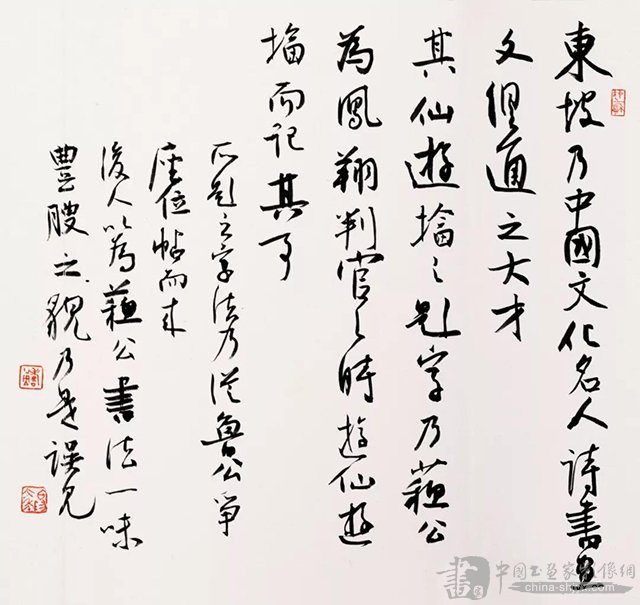 東坡乃中國文化名人詩書畫
文俱通之大才
其仙遊墖之題字乃蘓公
為鳳翔判官之時遊仙遊
墖而記其事
所題之字法乃從魯公爭
座位帖而來
後人以為蘓公書法一味
豐腴之貌乃是誤見
中國书画家肖像網